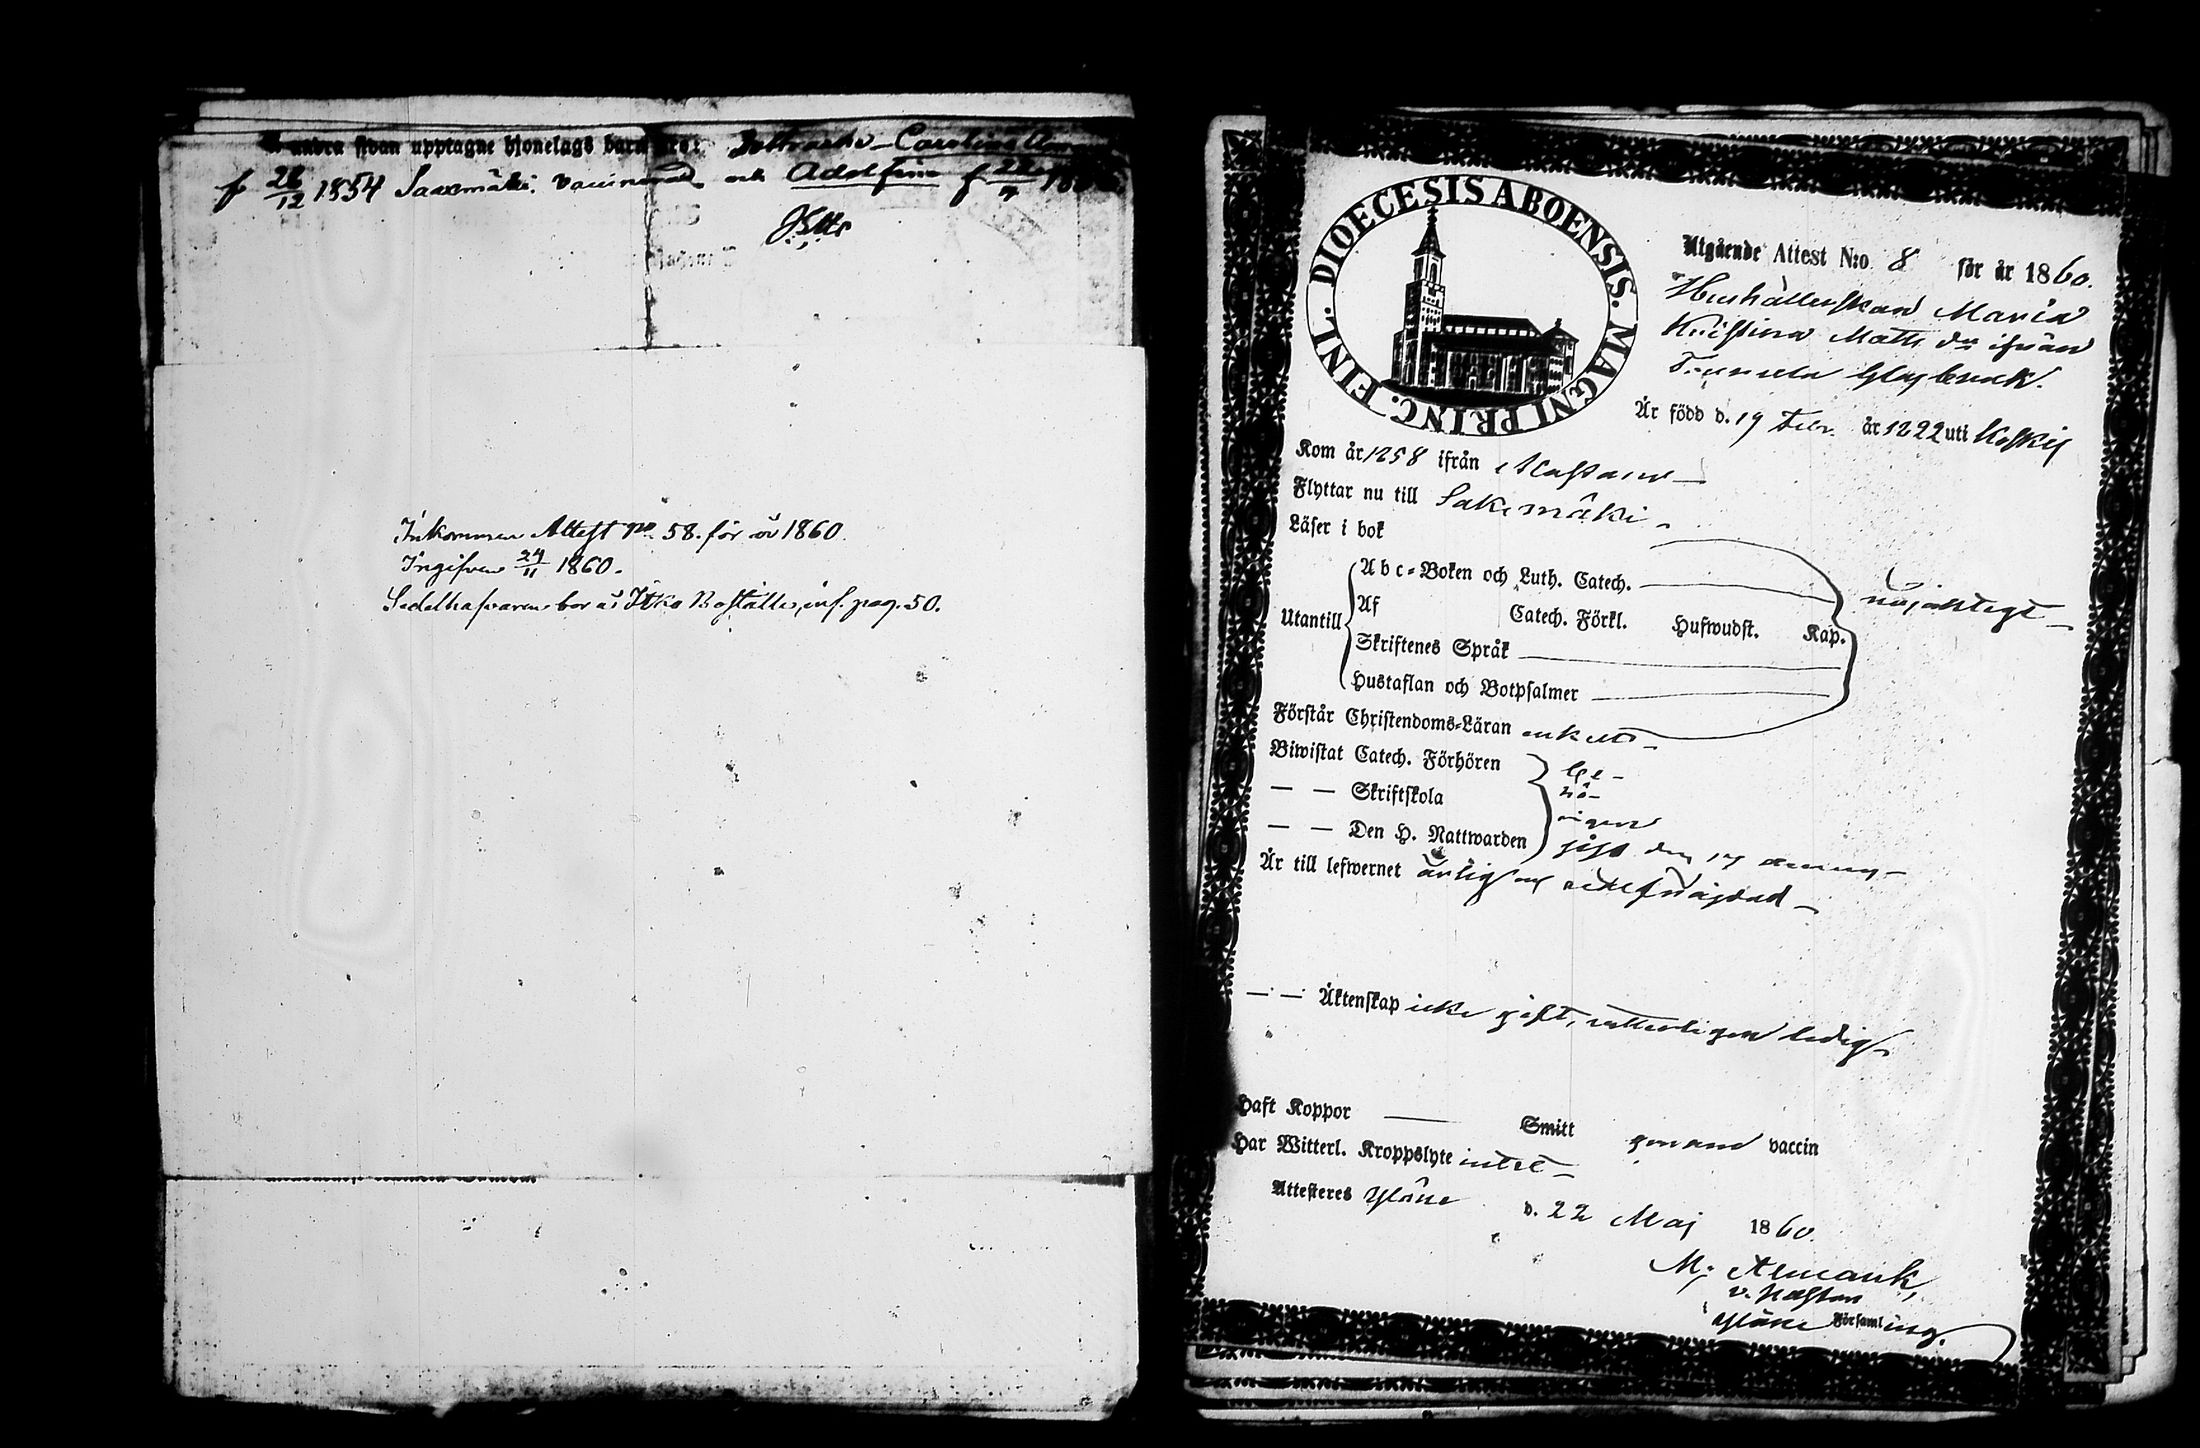 andra sidan upptagne hjonelags barn äro: Döttrarne Carolina
f 26/12 1854 Saaxmäki. vaccinerad och Adolfina f
Inkommen Attest No 58. för år 1860.
Ingifven 24/11 1860.
Sedelhafvaren bor å Itko Boställe, inf. pag. 50.
DIOECESIS ABOENSIS. MAGNI PRINC. FINL.
Utgående Attest N:o 8 för år 1860.
Hushållerskan Maria
Kristina Matts dr ifrån
Glasbruk.
Är född d. 19 Febr. år 1822 uti Koskis
Kom år 1858 ifrån
Flyttar nu till Sakimäki
Läser i bok
Utantill
Abc-Boken och Luth. Catech.
Af Catech. Förkl. Hufwudst. Kap.
nöjaktigt
Skriftenes Språk
Hustaflan och Botpsalmer
Förstår Christendoms-Läran enkelt
Biwistat Catech. Förhören be-
— — Skriftskola hö-
rigen
— — Den H. Nattwarden sist den 17
Är till lefwernet ärlig och
— — Äktenskap icke gift, ledig
Haft Koppor — Smitt genom vaccin
Har Witterl. Kroppslyte intet
Attesteres Yläne d. 22 Maj 1860.
M. Alcenank,
v. Pastor
Yläne Församling.